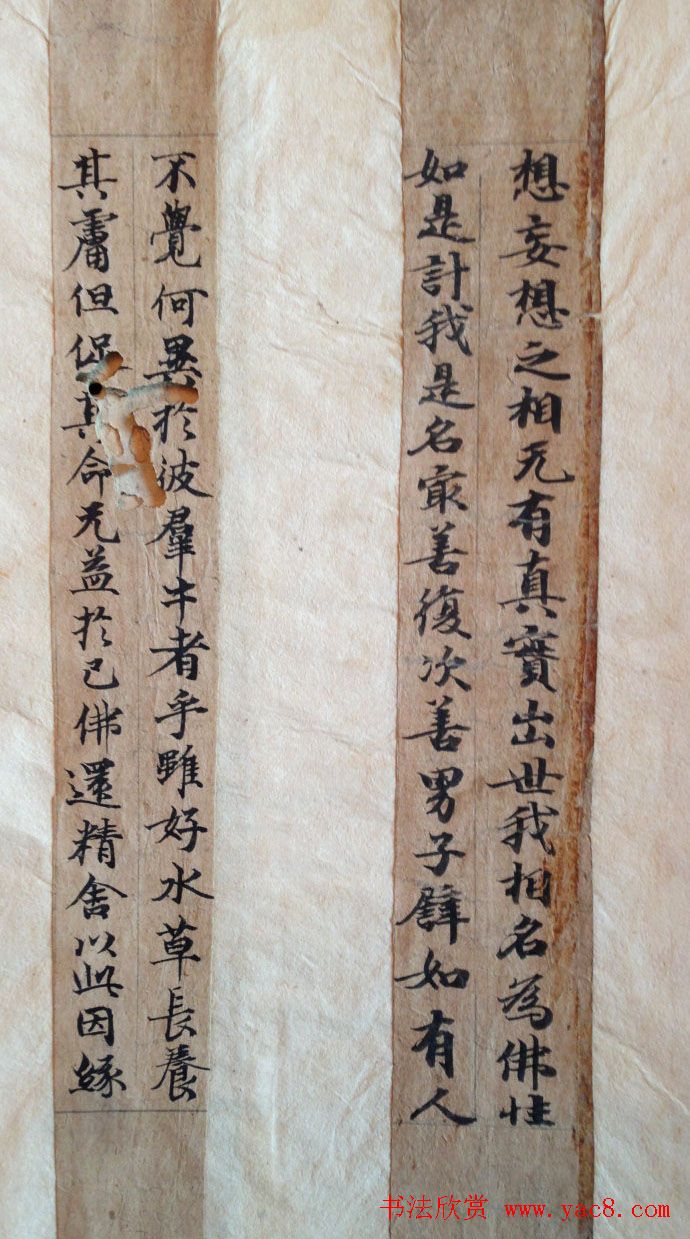 想妄想之相无有真實出世我相名為佛性
如是計我是名冣善復次善男子譬如有人
不覺何異於彼羣牛者乎雖好水草長養
其膚但促其命无益於己佛還精舍以此因緣
书法欣赏 www.yac8.com